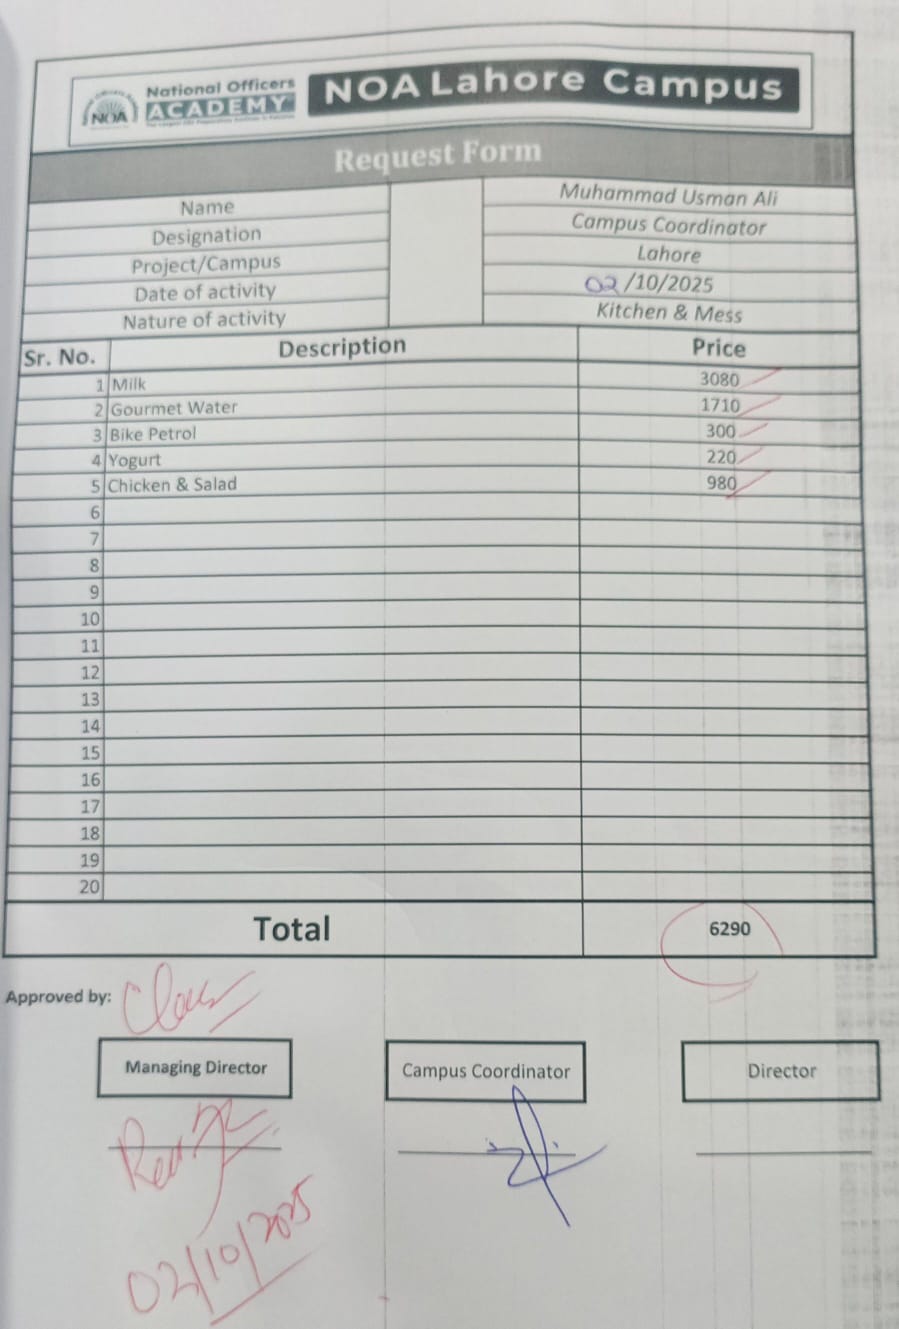 National Officers
ACADEMY
NOA
NOA Lahore Campus
Request Form
Name Muhammad Usman Ali
Designation Campus Coordinator
Project/Campus Lahore
Date of activity 02/10/2025
Nature of activity Kitchen & Mess
Sr. No. Description Price
1 Milk 3080
2 Gourmet Water 1710
3 Bike Petrol 300
4 Yogurt 220
5 Chicken & Salad 980
6
7
8
9
10
11
12
13
14
15
16
17
18
19
20
Total 6290
Approved by:
Managing Director Campus Coordinator Director
02/10/2025